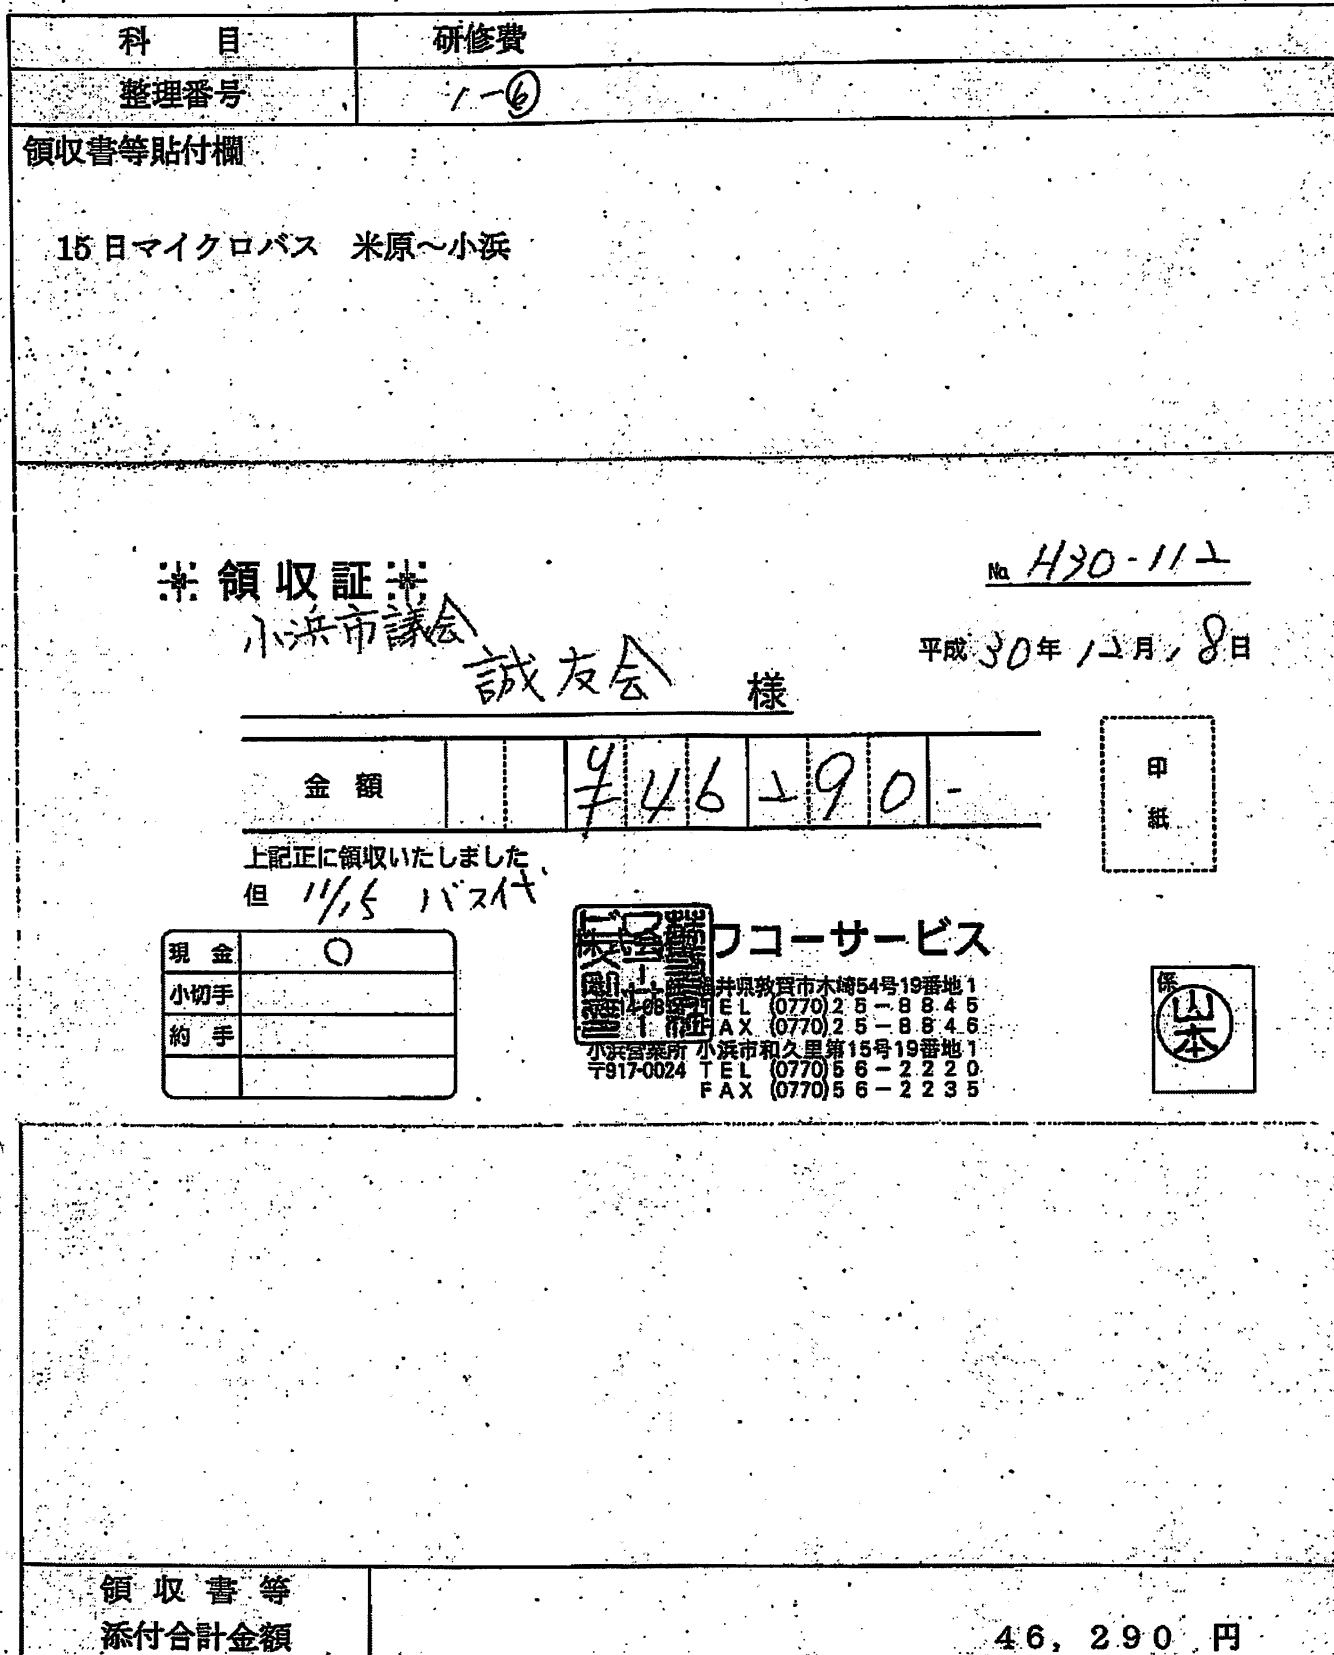 科　目　研修費
整理番号　1-⑥
領収書等貼付欄
15日マイクロバス　米原～小浜
※領収証※
№ H30-112
小浜市議会
平成30年12月18日
誠友会　様
金額　¥46290-
印紙
上記正に領収いたしました
但 11/15 バス代
ワコーサービス
現金 ○
小切手
約手
井県敦賀市木崎54号19番地1
TEL (0770)25-8845
FAX (0770)25-8846
小浜営業所 小浜市和久里第15号19番地1
〒917-0024 TEL (0770)56-2220
FAX (0770)56-2235
係
山本
領収書等
添付合計金額　46,290 円